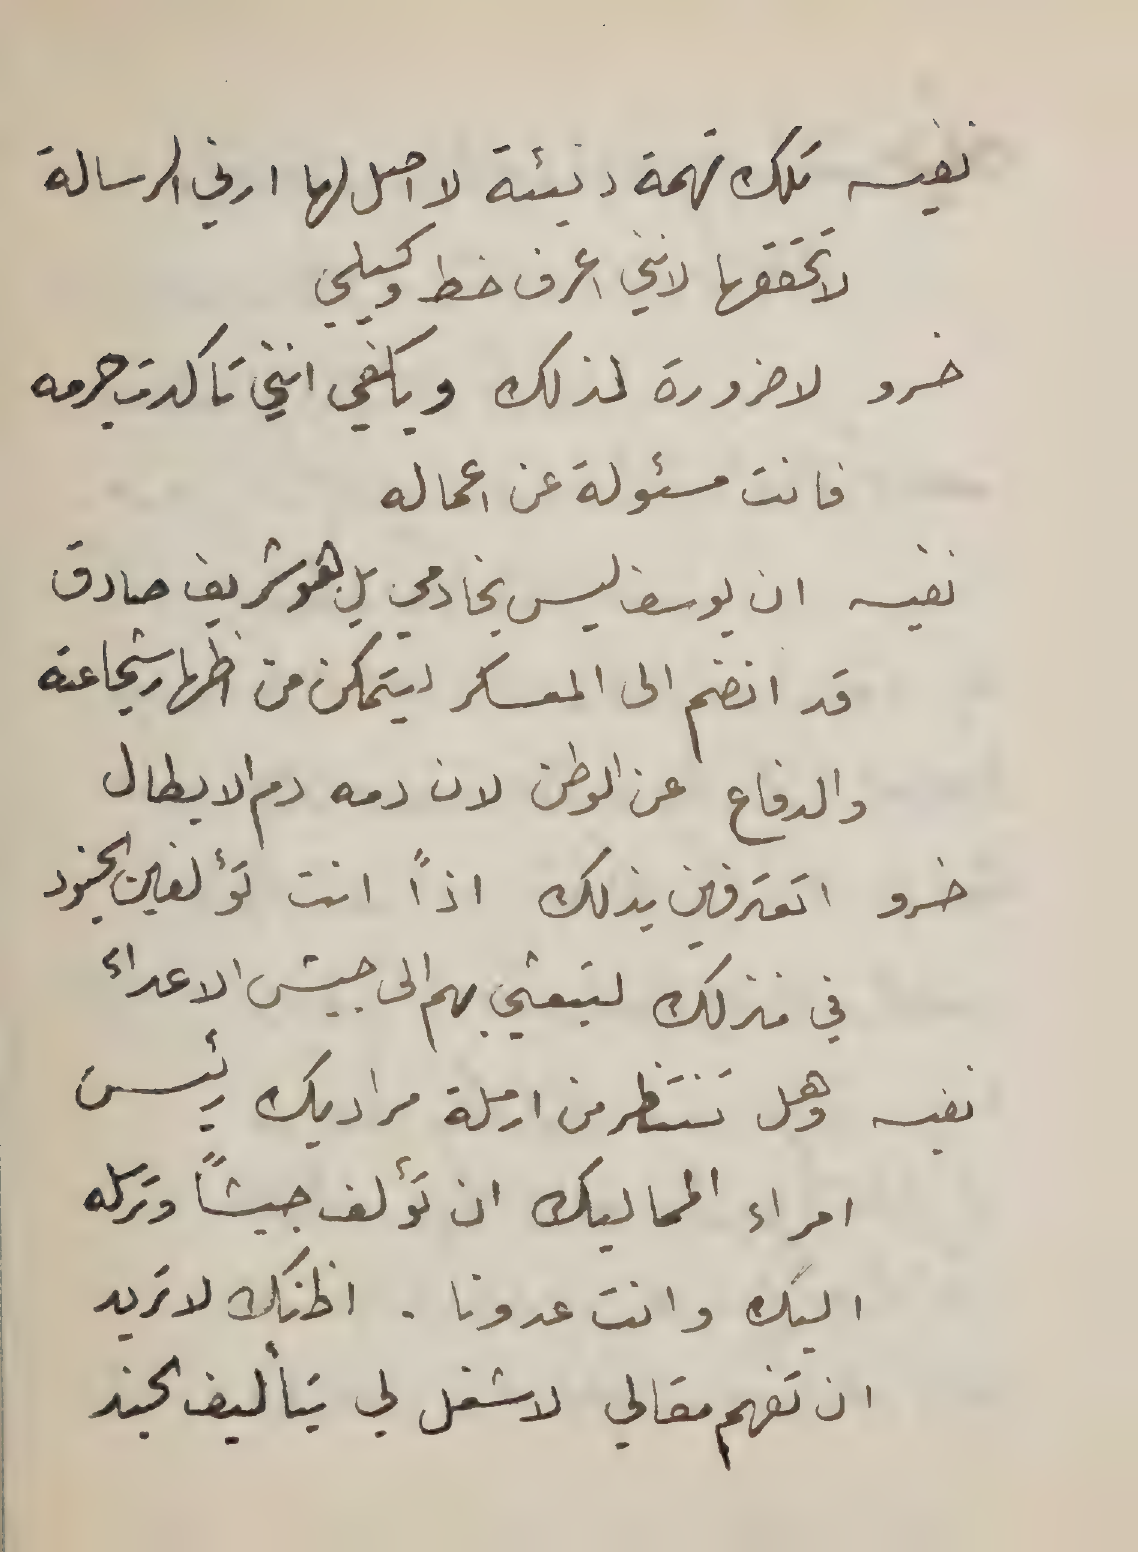 نفيسه تلك تهمة دنيئة لا اصل لها ارني الرسالة
لاتحققها لانني اعرف خط وكيلي
خسرو لا ضرورة لذلك ويكفي انني تاكدت جرمه
فانت مسئولة عن اعماله
نفيسه ان يوسف ليس بخادمي بل هو شريف صادق
قد انضم الى المعسكر ليتمكن من اظهار شجاعته
والدفاع عن الوطن لان دمه دم الابطال
خسرو اتعترفين بذلك اذاً انت تؤلفين الجنود
في منزلك لتبعثي بهم الى جيش الاعداء
نفيسه وهل تنتظر من ارملة مراد بك رئيس
امراء المماليك ان تؤلف جيشاً وترسله
اليك وانت عدونا . اظنك لا تريد
ان تفهم مقالي لا شغل لي بتأليف الجند